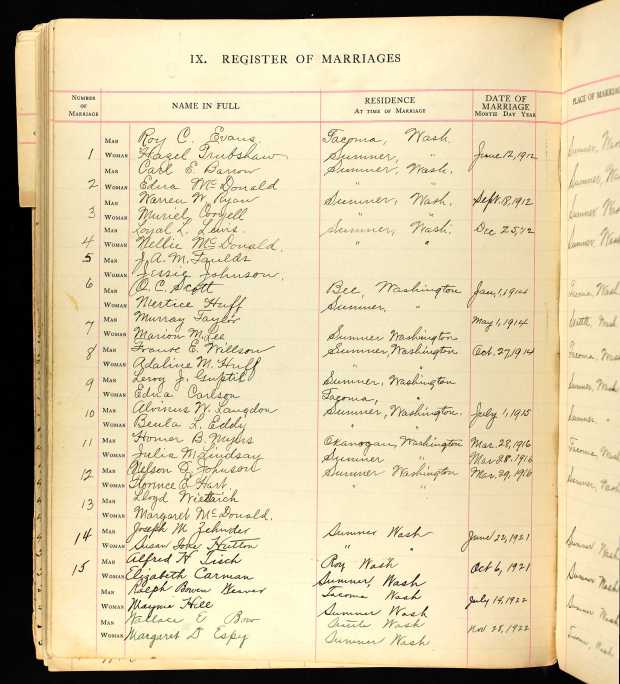 IX. REGISTER OF MARRIAGES
NUMBER OF MARRIAGE NAME IN FULL RESIDENCE AT TIME OF MARRIAGE DATE OF MARRIAGE MONTH DAY YEAR PLACE OF MARRIAGE
MAN Roy C. Evans Tacoma, Wash.
1 WOMAN Hazel Trubshaw Sumner, " June 12, 1912
MAN Carl E. Barrow Sumner, Wash.
2 WOMAN Edna McDonald " " Sept. 18, 1912
MAN Warren W. Ryan Sumner, Wash.
3 WOMAN Muriel " "
MAN Loyal L. Sumner, Wash. Dec 25, 12
4 WOMAN Nellie McDonald. " "
5 MAN J. A. M. Faulds
WOMAN Jessie Johnson.
6 MAN O. C. Scott Bee, Washington Jan, 1, 1914
WOMAN Mertice Huff Sumner,
MAN Murray Taylor May 1, 1914
7 WOMAN Marion M. Lee Sumner Washington
8 MAN E. Willson Sumner, Washington Oct. 27, 1914
WOMAN Adaline M. Huff " "
9 MAN Leroy J. Guptil Sumner, Washington
WOMAN Edna Carlson Tacoma, "
10 MAN Alvinus W. Langdon Sumner, Washington. July 1, 1915
WOMAN Beula L. Eddy " "
11 MAN Homer B. Myers Okanogan, Washington Mar. 28, 1916
WOMAN Julia M. Lindsay Sumner " Mar. 28. 1916
12 MAN Nelson Johnson Sumner Washington Mar. 29, 1916
WOMAN Florence E. Hart " "
13 MAN Lloyd
WOMAN Margaret McDonald.
14 MAN Joseph M. Zehnder Sumner Wash June 22, 1921
WOMAN Susan Hutton " "
15 MAN Alfred H. Tisch Roy Wash Oct 6, 1921
WOMAN Elizabeth Carman Sumner, Wash
MAN Ralph Bowen Weaver Tacoma Wash July 14, 1922
WOMAN Mayme Hill Sumner Wash
MAN Wallace E. Bow Seattle Wash Nov 28, 1922
WOMAN Margaret D Espy Sumner Wash